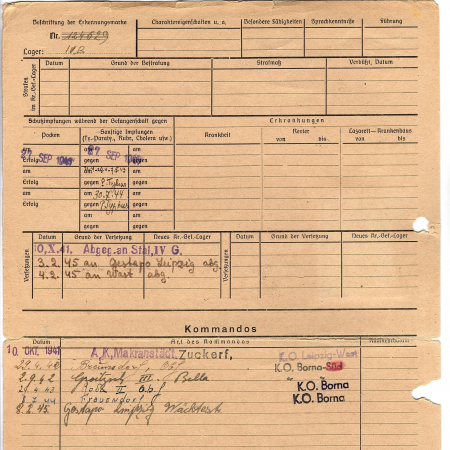 Beschriftung der Erkennungsmarke
Charaktereigenschaften u. a.
Besondere Fähigkeiten
Sprachkenntnisse
Führung
Nr.
Lager: IVB
Strafen im Kr.-Gef.-Lager
Datum
Grund der Bestrafung
Strafmaß
Verbüßt, Datum
Schutzimpfungen während der Gefangenschaft gegen
Erkrankungen
Pocken
Sonstige Impfungen
(Ty.-Paraty., Ruhr, Cholera usw.)
Krankheit
Revier
von bis
Lazarett—Krankenhaus
von bis
am 27 SEP 1941 am 27 SEP 1941 am
Erfolg gegen gegen
am am am
Erfolg gegen P. Typhus gegen
am am 30.7.44 am
Erfolg gegen P. Typhus gegen
am am
gegen gegen
Versetzungen
Datum
Grund der Versetzung
Neues Kr.-Gef.-Lager
Versetzungen
Datum
Grund der Versetzung
Neues Kr.-Gef.-Lager
0. X. 41. Abgeg. an Stal. IV G.
3.2.45 an Gestapo Leipzig abg.
4.2.45 an Wart abg.
Kommandos
Datum
Art des Kommandos
10. OKT. 1941 A.K. Makranstädt. Zuckerf. K.O. Leipzig-West
K.O. Borna-Süd
2.9.42 Groitzsch III Bella
K.O. Borna
K.O. Borna
8.2.45. Gestapo Leipzig